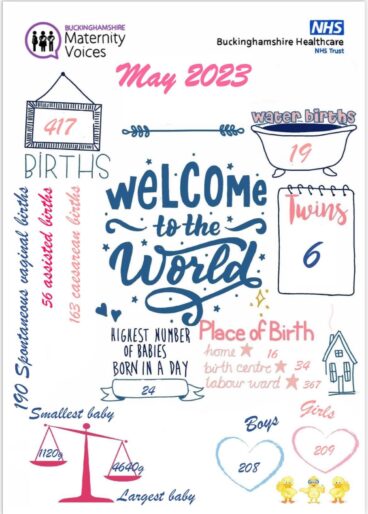 BUCKINGHAMSHIRE
Maternity
Voices
NHS
Buckinghamshire Healthcare
NHS Trust
May 2023
417
BIRTHS
water births
19
welcome
to the
World
Twins
6
190 Spontaneous vaginal births
56 assisted births
163 caesarean births
HIGHEST NUMBER
OF BABIES
BORN IN A DAY
24
Place of Birth
home 16
birth centre 34
labour ward 367
Smallest baby
1120g
4640g
Largest baby
Boys
208
Girls
209